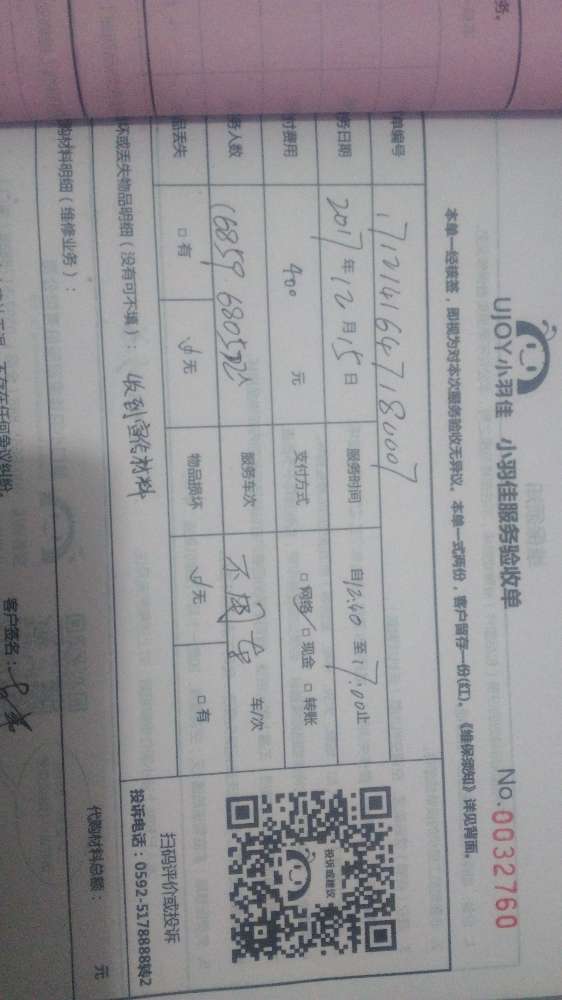 务。
UJOY小羽佳 小羽佳服务验收单
No.0032760
本单一经核签，即视为对本次服务验收无异议。本单一式两份，客户留存一份(红)。《维保须知》详见背面。
单编号 17121416471800
务日期 2017年12月15日 服务时间 自12:40 至17:00止
付费用 400 元 支付方式 □网络 □现金 □转账
务人数 人 服务车次 车/次
品丢失 □有 √无 物品损坏 √无 □有
投诉或建议
扫码评价或投诉
投诉电话：0592-5178888转2
坏或丢失物品明细（没有可不填）： 收到宣传材料
购材料明细（维修业务）：
代购材料总额： 元
不存在任何争议纠纷
客户签名：